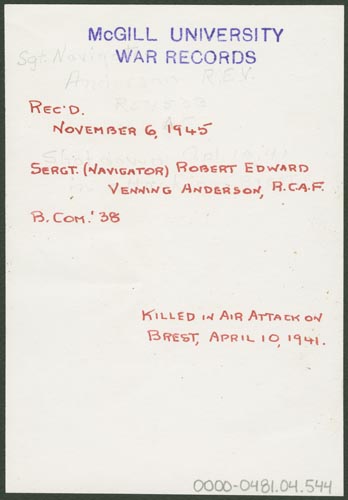 McGILL UNIVERSITY
WAR RECORDS
Sgt. Navigator
Anderson R.E.V.
REC'D.
NOVEMBER 6, 1945
SERGT. (NAVIGATOR) ROBERT EDWARD
VENNING ANDERSON, R.C.A.F.
B. COM. '38
KILLED IN AIR ATTACK ON
BREST, APRIL 10, 1941.
0000-0481.04.544